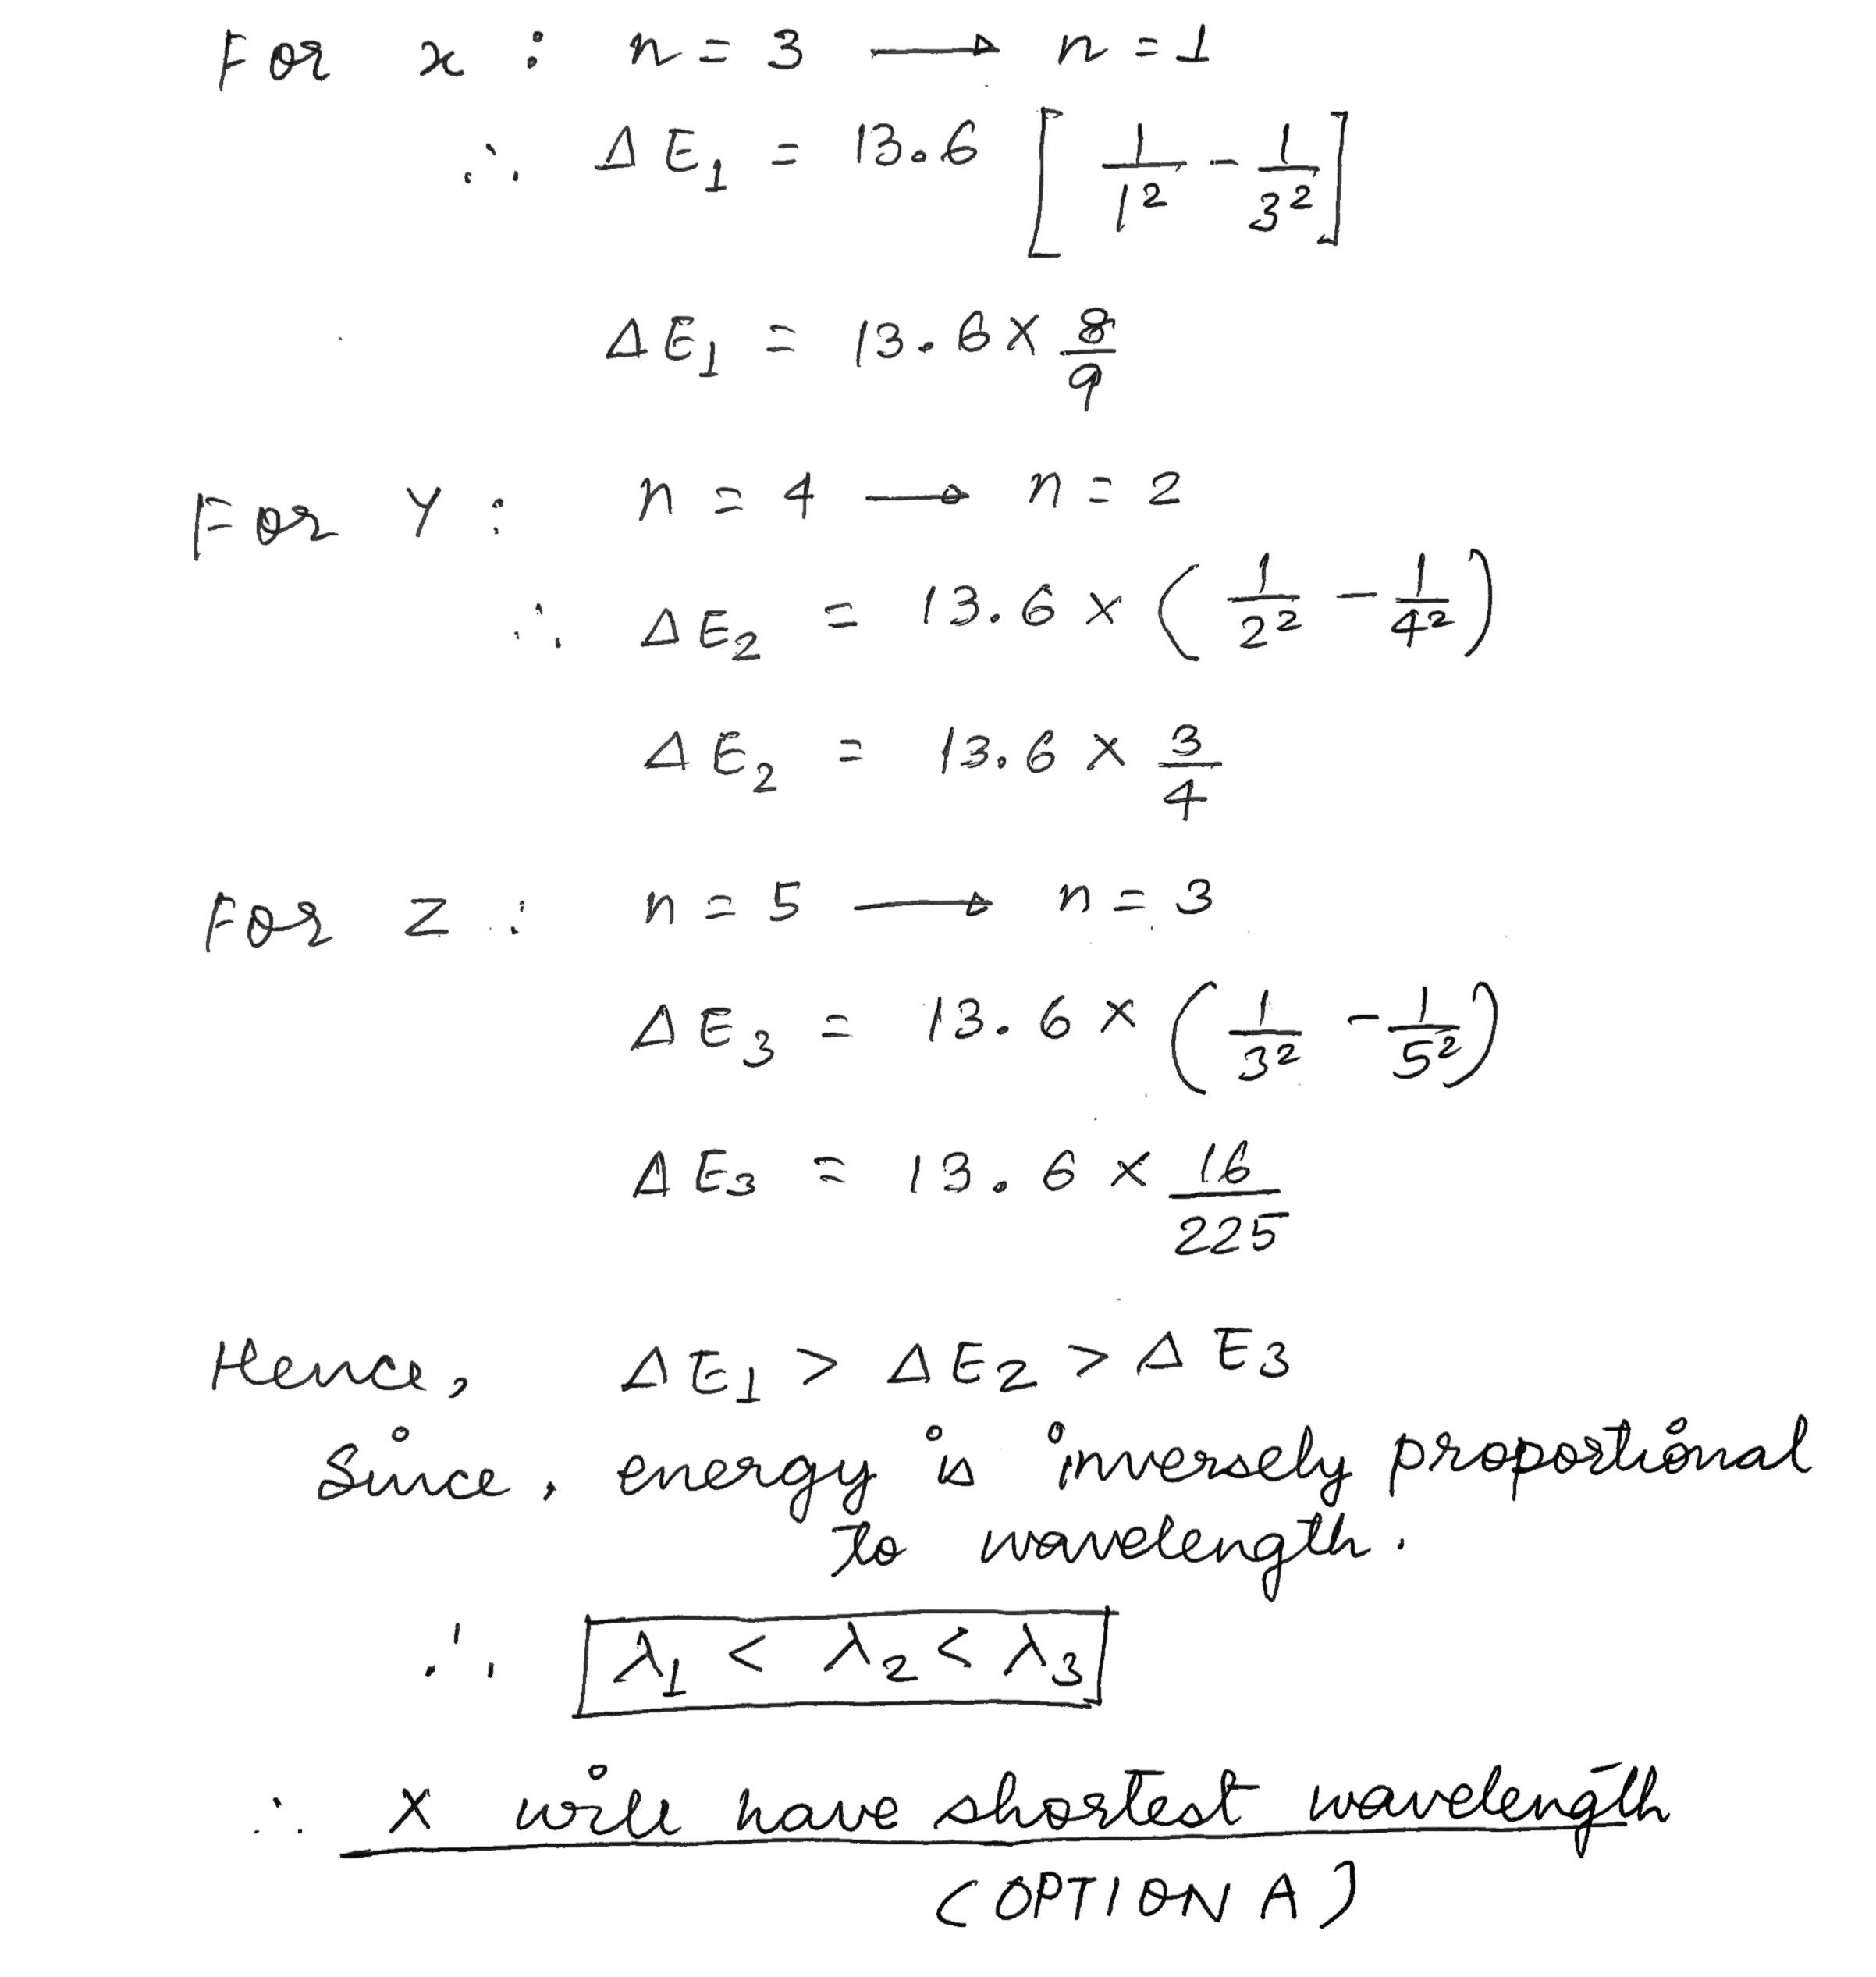 For x : n = 3 → n = 1
∴ ΔE₁ = 13.6 [ 1/1² - 1/3² ]
ΔE₁ = 13.6 × 8/9
For Y : n = 4 → n = 2
∴ ΔE₂ = 13.6 × ( 1/2² - 1/4² )
ΔE₂ = 13.6 × 3/4
For Z : n = 5 → n = 3
ΔE₃ = 13.6 × ( 1/3² - 1/5² )
ΔE₃ = 13.6 × 16/225
Hence, ΔE₁ > ΔE₂ > ΔE₃
Since, energy is inversely proportional
to wavelength.
∴ λ₁ < λ₂ < λ₃
∴ X will have shortest wavelength
(OPTION A)